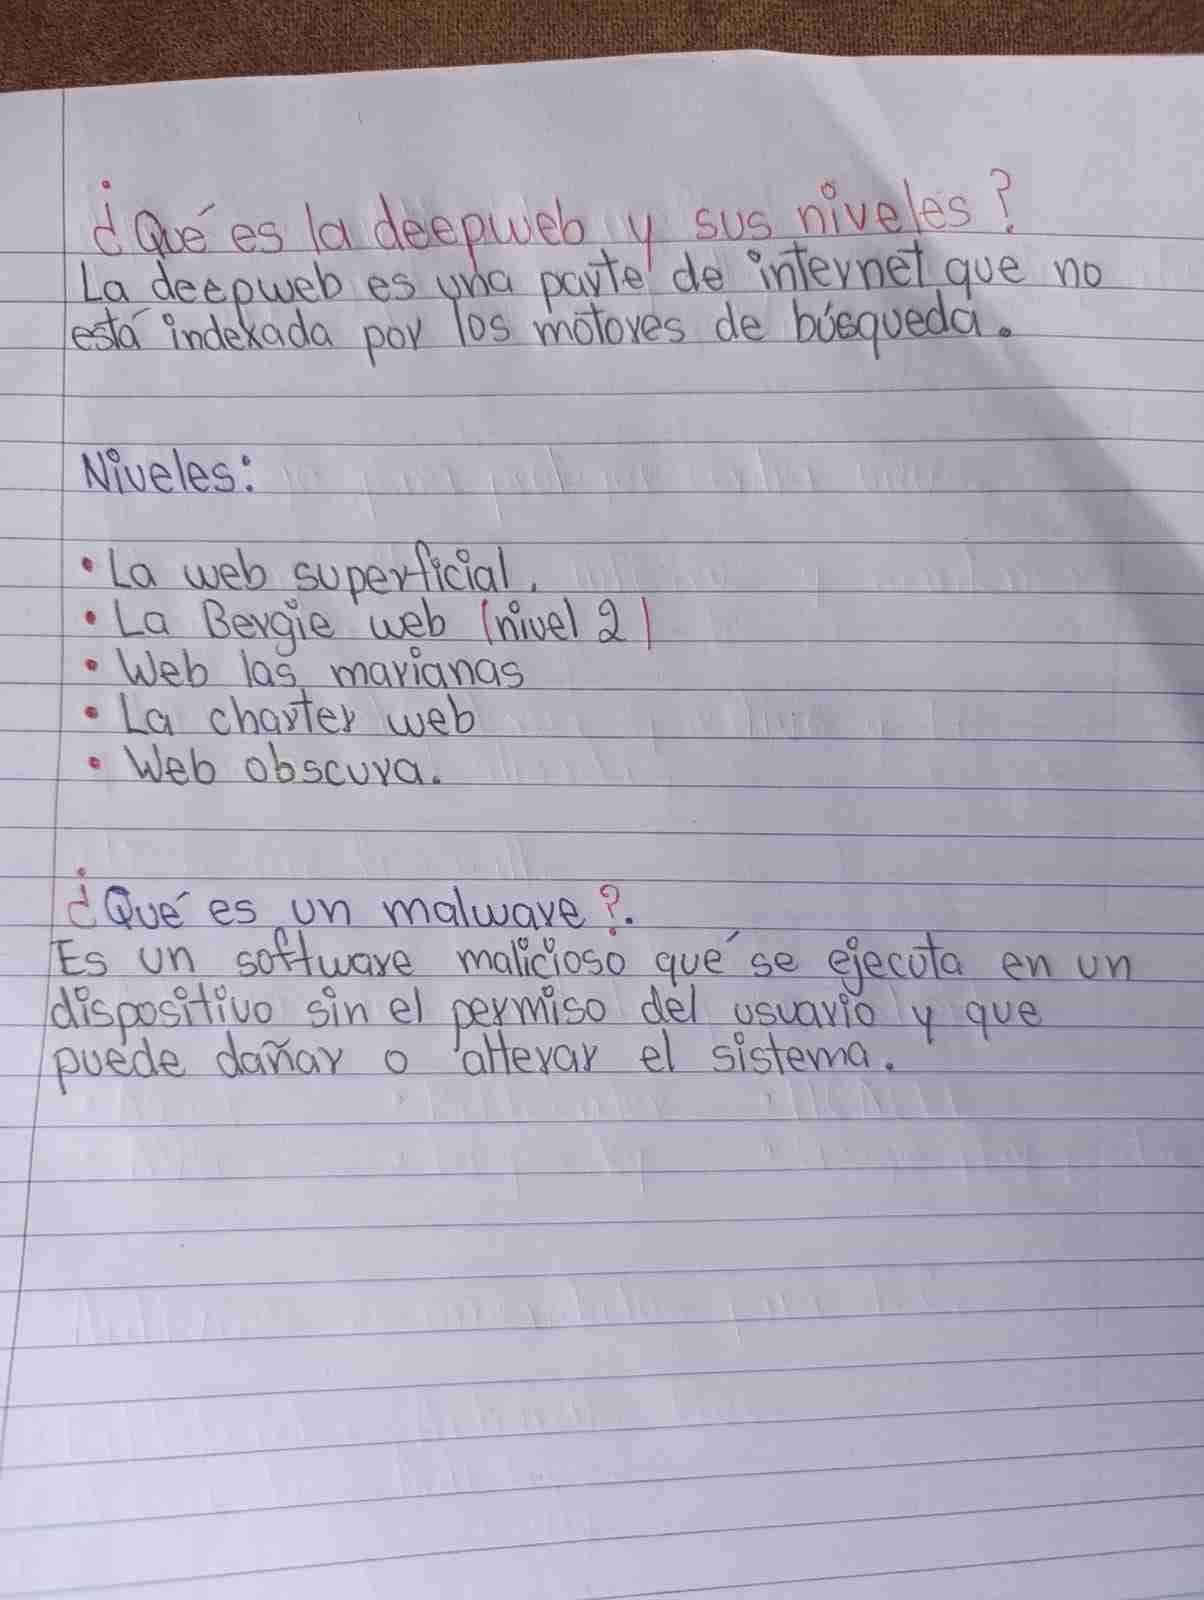 ¿Qué es la deepweb y sus niveles?
La deepweb es una parte de internet que no
está indexada por los motores de búsqueda.
Niveles:
• La web superficial.
• La Bergie web (nivel 2)
• Web las marianas
• La charter web
• Web obscura.
¿Qué es un malware?.
Es un software malicioso qué se ejecuta en un
dispositivo sin el permiso del usuario y que
puede dañar o alterar el sistema.